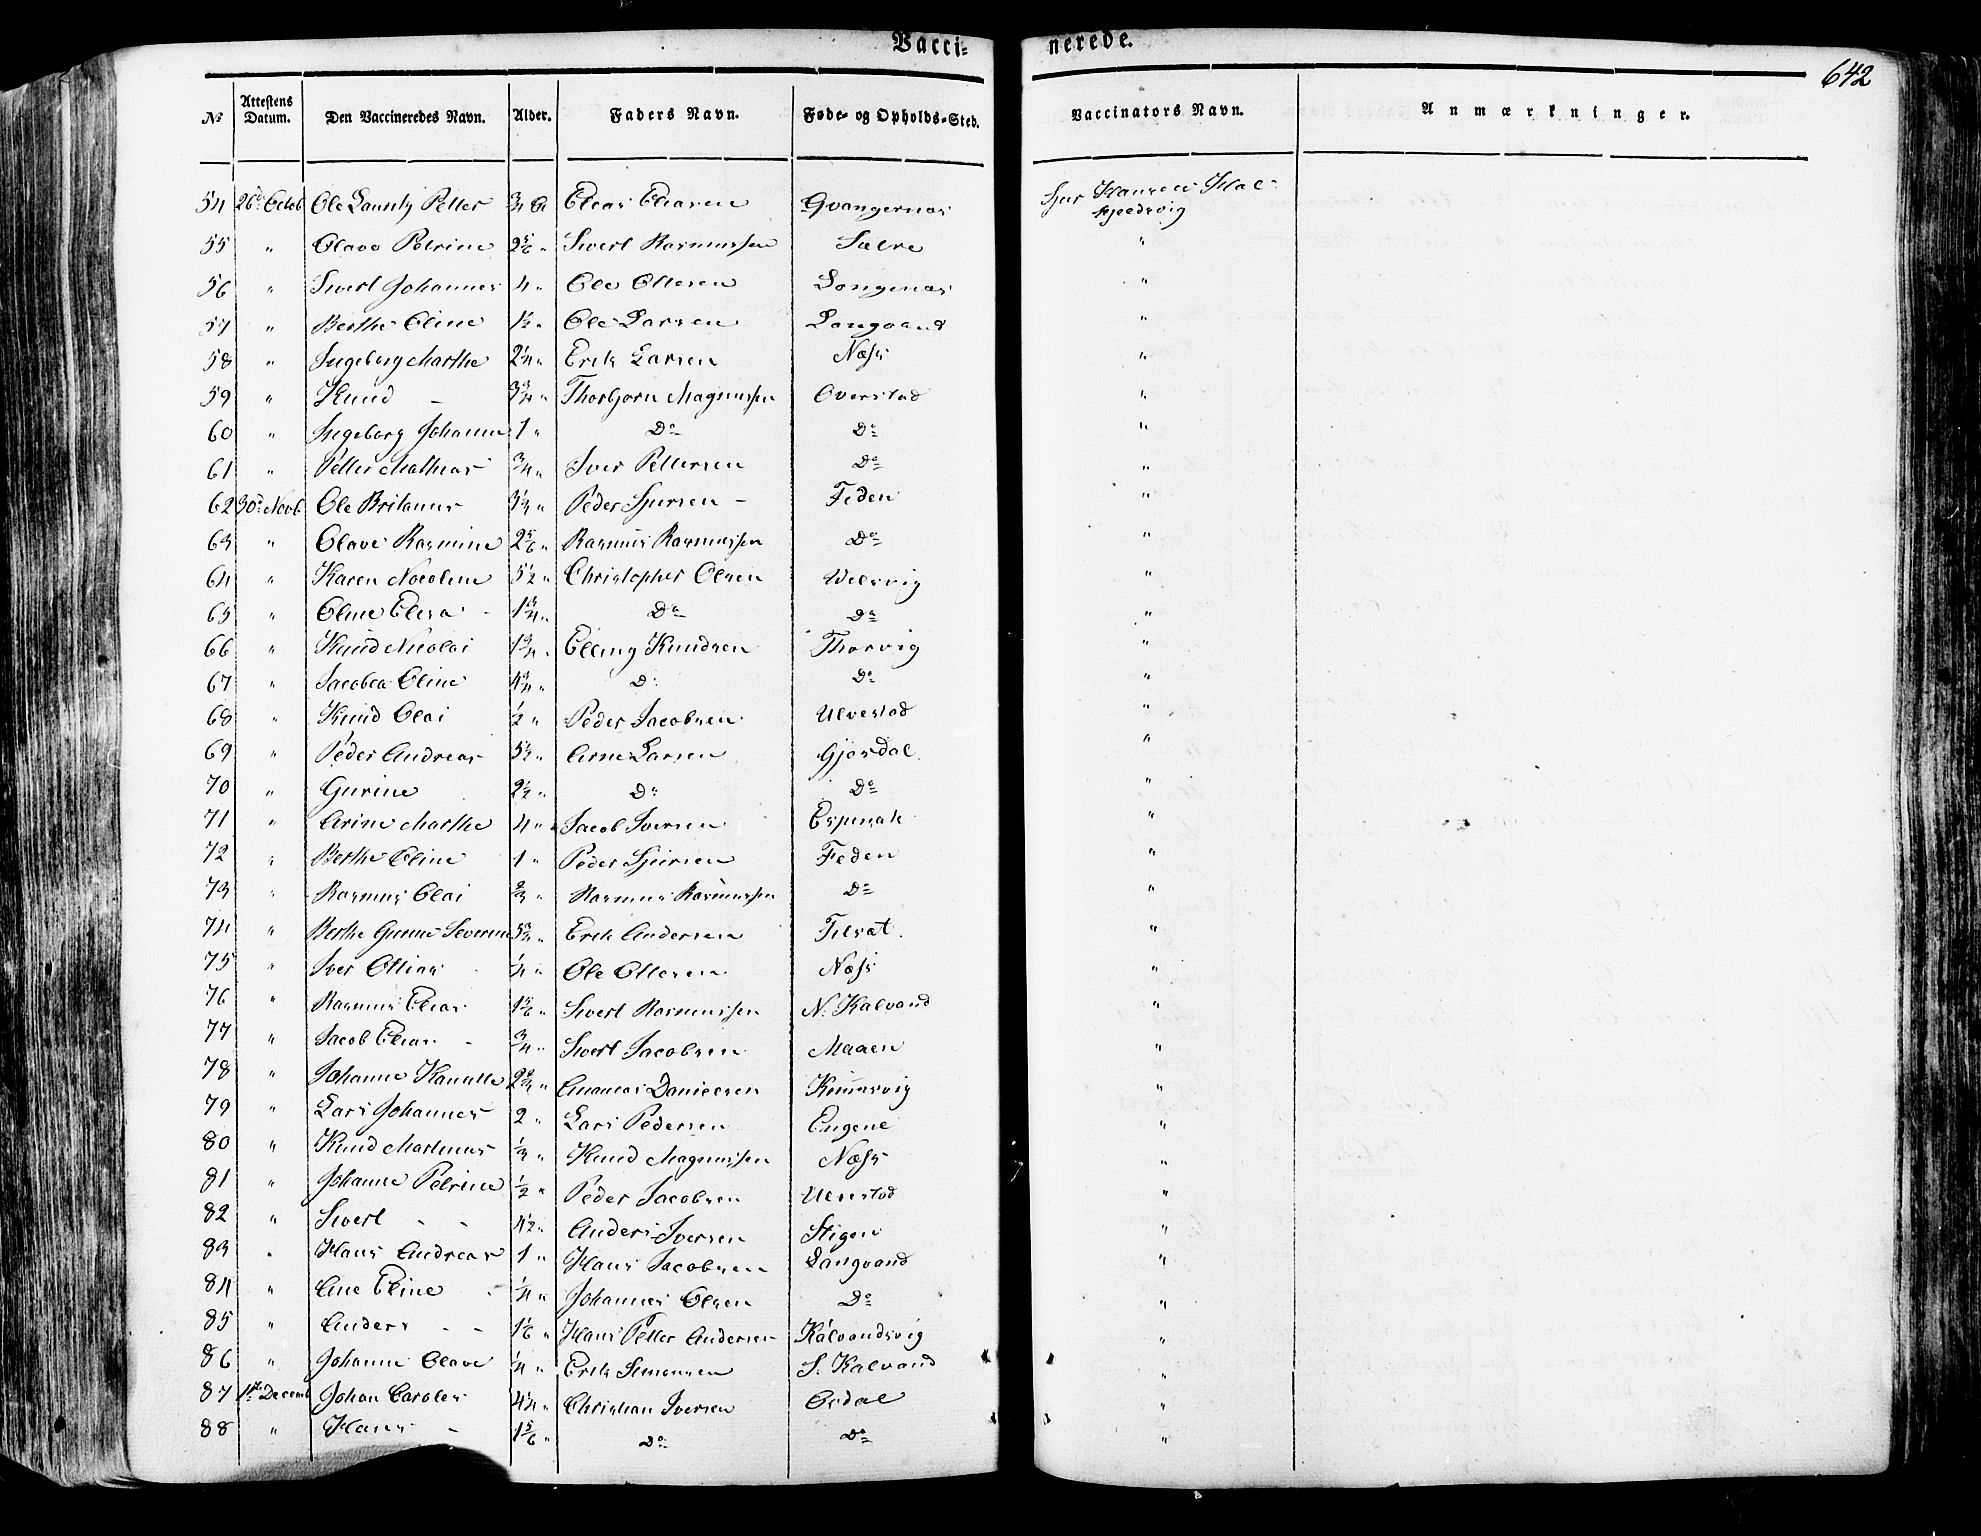 Vacci- nerede.
642
No Attestens Datum. Den Vaccineredes Navn. Alder. Faders Navn. Føde- og Opholds-Sted. Vaccinators Navn. Anmærkninger.
54 26d Octob Ole Petter Elias Eliasen Qvangernæs Sjur Hansen
55 " Olave Petrine 2 5/6 " Sivert Rasmussen Sætre "
56 " Sivert Johannes 4 " Ole Ottesen Langenæs "
57 " Berthe Oline 1 1/2 " Ole Larsen Langvand "
58 " Ingeborg Marthe 2 1/4 " Erik Larsen Næss "
59 " Knud - 3 3/4 " Thorbjørn Magnussen Overstad "
60 " Ingeborg Johanne 1 " Do Do "
61 " Petter Mathias 3/4 " Iver Pettersen Do "
62 30d Novb. Ole Britanus 3 1/3 " Peder Sjursen - Feden "
63 " Olave Rasmine 2 5/6 " Rasmus Rasmussen Do "
64 " Karen Nicoline 5 1/2 " Christopher Olsen Velsvig "
65 " Oline Elisa - 1 3/4 " Do Do "
66 " Knud Nicolai 1 3/4 " Elling Knudsen Thorvig "
67 " Jacobea Oline 4 3/4 " Do Do "
68 " Knud Olai 1/2 " Peder Jacobsen Ulvestad "
69 " Peder Andreas 5 1/2 " Arne Larsen Gjørdal "
70 " Gurine 2 1/2 " Do Do "
71 " Arine Marthe 4 " Jacob Iversen Espesæt "
72 " Berthe Oline 1 " Peder Sjursen Feden "
73 " Rasmus Olai 2/3 " Rasmus Rasmussen Do "
74 " Berthe Gurine Severine 3 3/4 " Erik Andersen Tilsæt. "
75 " Iver Ottias 1/4 " Ole Ottesen Næss "
76 " Rasmus Elias 1 5/6 " Sivert Rasmussen N. Kalvand "
77 " Jacob Elias - 3/4 " Sivert Jacobsen Maaen "
78 " Johanne 2 3/4 " Ananias Danielsen "
79 " Lars Johannes 2 " Lars Pedersen Engene "
80 " Knud Martinus 1/3 " Knud Magnussen Næss "
81 " Johanne Petrine 1/2 " Peder Jacobsen Ulvestad "
82 " Sivert - - 4 1/2 " Anders Iversen Stigen "
83 " Hans Andreas 1 " Hans Jacobsen Langvand "
84 " Ane Eline - 1/4 " Johannes Olsen Do "
85 " Anders - - 1 1/6 " Hans Petter Andersen Kalvandsvig "
86 " Johanne Olave 1/4 " Erik Simonsen S. Kalvand "
87 1ste Decemb Johan Caroles 4 1/4 " Christian Iversen Ørdal "
88 " Hans - 1 5/6 " Do Do "